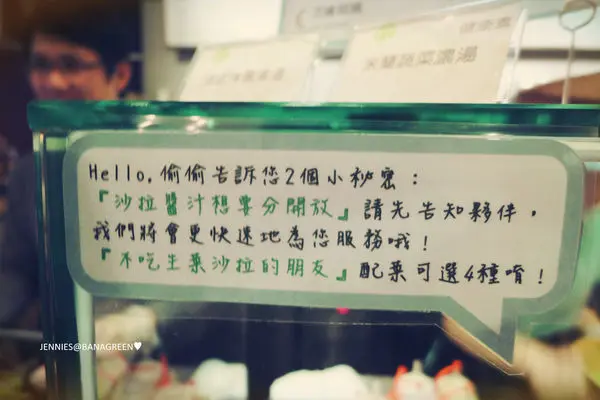 米蘭蔬菜濃湯
Hello,偷偷告訴您2個小秘密：
『沙拉醬汁想要分開放』請先告知夥伴，
我們將會更快速地為您服務哦！
『不吃生菜沙拉的朋友』配菜可選4種唷！
JENNIES@BANAGREEN♥